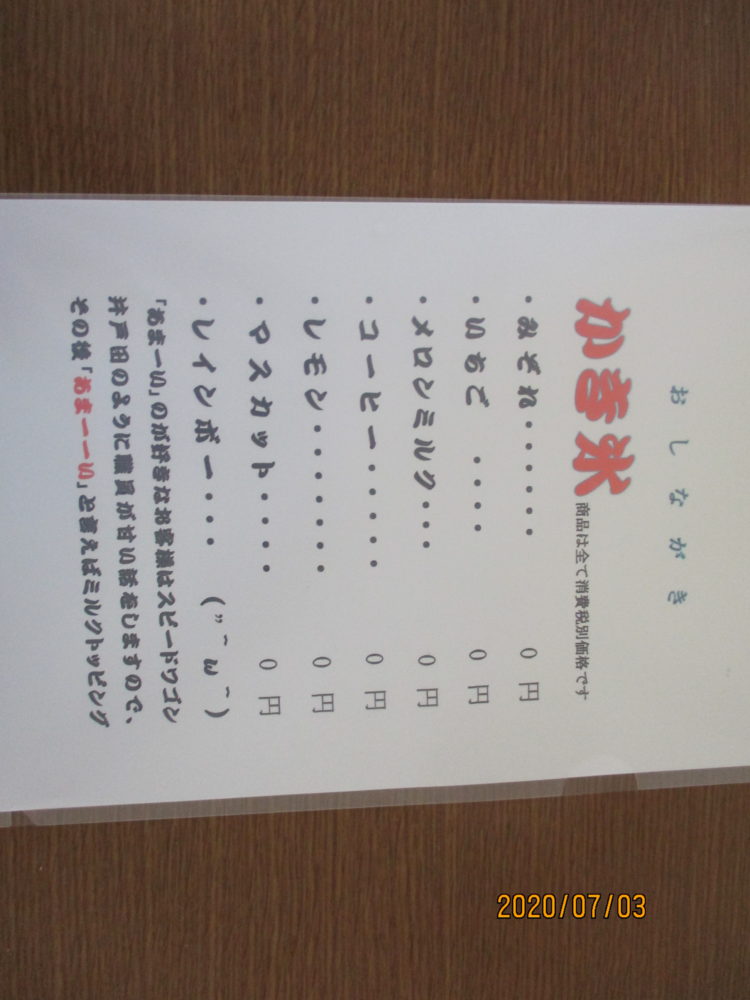 おしながき
かき氷 商品は全て消費税別価格です
・みぞれ・・・・・・ 0 円
・いちご ・・・・ 0 円
・メロンミルク・・・ 0 円
・コーヒー・・・・・ 0 円
・レモン・・・・・・・ 0 円
・マスカット・・・・ 0 円
・レインボー・・・・ (”¯ω¯)
「あまーい」のが好きなお客様はスピードワゴン
井戸田のように職員が甘い話をしますので、
その後「あまーーい」と言えばミルクトッピング
2020/07/03